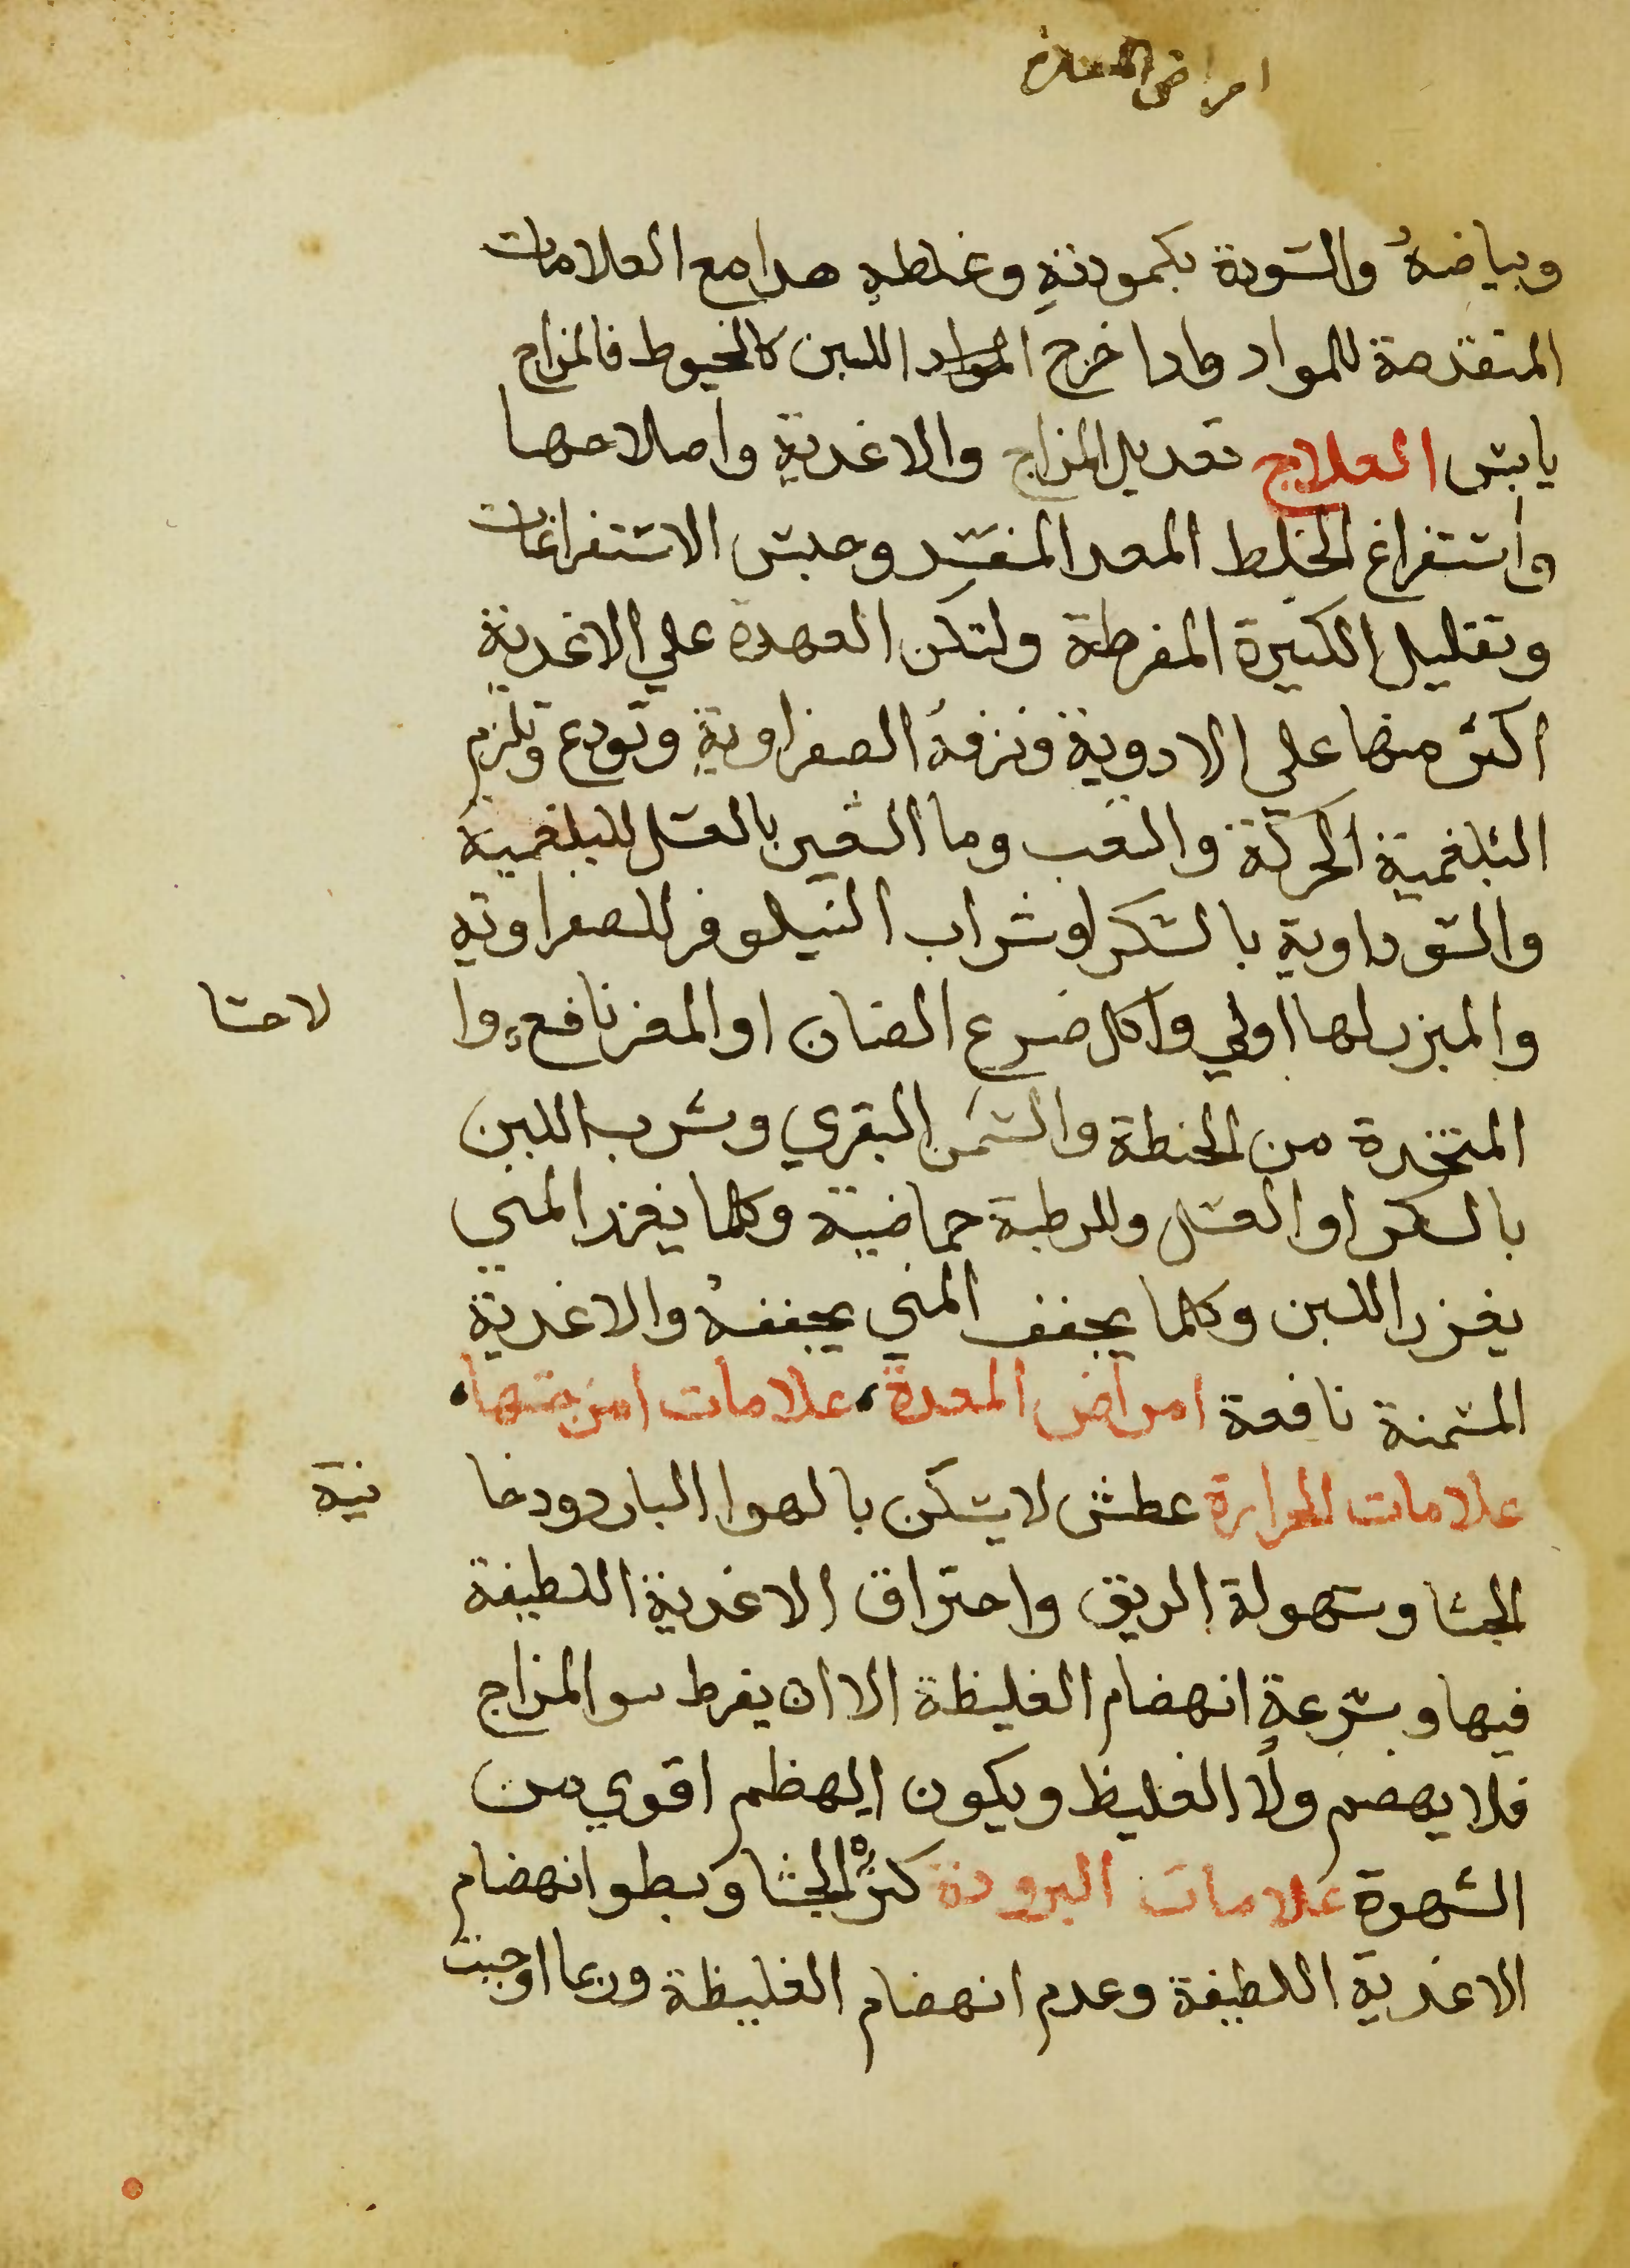 امراض المعدة
وبياضهُ والسودة بكمودتهِ وغلظهِ هدا مع العلامات
المتقدمة للمواد وادا خرج المواد اللبن كالخيوط فالمزاج
يابس العلاج تعديل المزاج والاغدية واصلاحها
وأستفراغ الخلط المعد المفسد وحبس الاستفراغات
وتقليل الكثيرة المفرطة ولتكن العهدة علي الاغدية
اكثر منها علي الادوية وترفهُ الصفراوية وتودع وتلزم
البلغمية الحركة والتعب وما الشعير بالعسل للبلغمية
والسوداوية بالسكر او شراب النيلوفر للصفراوية
والمبزر لها اولي واكل ضرع الضان او المعز نافع وا
لاحسا
المتخدة من الحنطة والسمن البقري وشرب اللبن
بالسكر او العسل وللرطبة حماضية وكلما يغزر المني
يغزر اللبن وكلما يجفف المني يجففهُ والاغدية
المسمنة نافعة امراض المعدة علامات امزجتها
علامات الحرارة عطش لا يسكن بالهوا البارد ودخا
نية
الجشا وسهولة الريق واحتراق الاغدية اللطيفة
فيها وبسرعةٍ انهضام الغليظة الا ان يفرط سو المزاج
فلا يهضم ولا الغليظ ويكون الهظم اقوي من
الشهوة علامات البرودة كثرة الجشا وبطو انهضام
الاغدية اللطيفة وعدم انهضام الغليظة وربما اوجبت